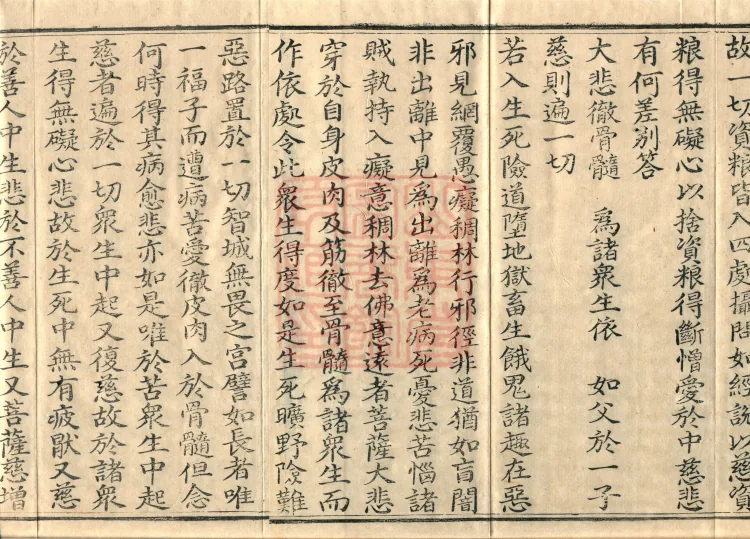 故一切資粮皆入四處攝問如經說以慈資
粮得無礙心以捨資粮得斷憎愛於中慈悲
有何差別答
大悲徹骨髓　為諸衆生依　如父於一子
慈則遍一切
若入生死險道墮地獄畜生餓鬼諸趣在惡
邪見網覆愚癡稠林行邪徑非道猶如盲闇
非出離中見為出離為老病死憂悲苦惱諸
賊執持入癡意稠林去佛意遠者菩薩大悲
穿於自身皮肉及筋徹至骨髓為諸衆生而
作依處令此衆生得度如是生死曠野險難
惡路置於一切智城無畏之宮譬如長者唯
一福子而遭病苦愛徹皮肉入於骨髓但念
何時得其病愈悲亦如是唯於苦衆生中起
慈者遍於一切衆生中起又復慈故於諸衆
生得無礙心悲故於生死中無有疲厭又慈
於善人中生悲於不善人中生又菩薩慈增